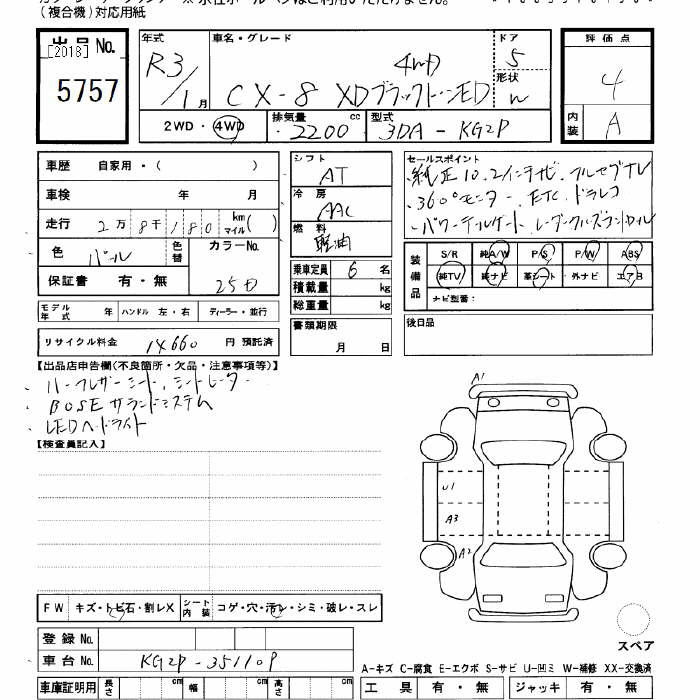 (複合機)対応用紙
出品No.
[2018]
5757
年式
R3/1月
車名・グレード
4WD
CX-8 XDブラックトーンED
ドア
5
形状
W
評価点
4
内装
A
2WD・4WD
排気量
2200 cc
型式
3DA-KG2P
車歴 自家用・( )
車検 年 月
走行 2万8千180 km マイル( )
色 パール 色替
カラーNo.
25D
保証書 有・無
モデル年式 年 ハンドル 左・右 ディーラー・並行
リサイクル料金 14660 円 預託済
シフト
AT
冷房
AAC
燃料
軽油
乗車定員 6 名
積載量 kg
総重量 kg
書類期限
月 日
セールスポイント
・純正10.2インチナビ、フルセグTV
・360°モニター ETC ドラレコ
・パワーテールゲート、レーダークルーズコントロール
装備品
S/R 純A/W P/S P/W ABS
純TV 純ナビ 革シート 外ナビ エアB
ナビ型番:
後日品
【出品店申告欄(不良箇所・欠品・注意事項等)】
・ハーフレザーシート、シートヒーター
・BOSEサラウンドシステム
・LEDヘッドライト
【検査員記入】
A1
U1
A3
A2
FW キズ・トビ石・割レX シート内装 コゲ・穴・汚レ・シミ・破レ・スレ
スペア
登録No.
車台No. KG2P-351109
車庫証明用 長さ cm 幅 cm 高さ cm
A-キズ C-腐食 E-エクボ S-サビ U-凹ミ W-補修 XX-交換済
工具 有・無 ジャッキ 有・無